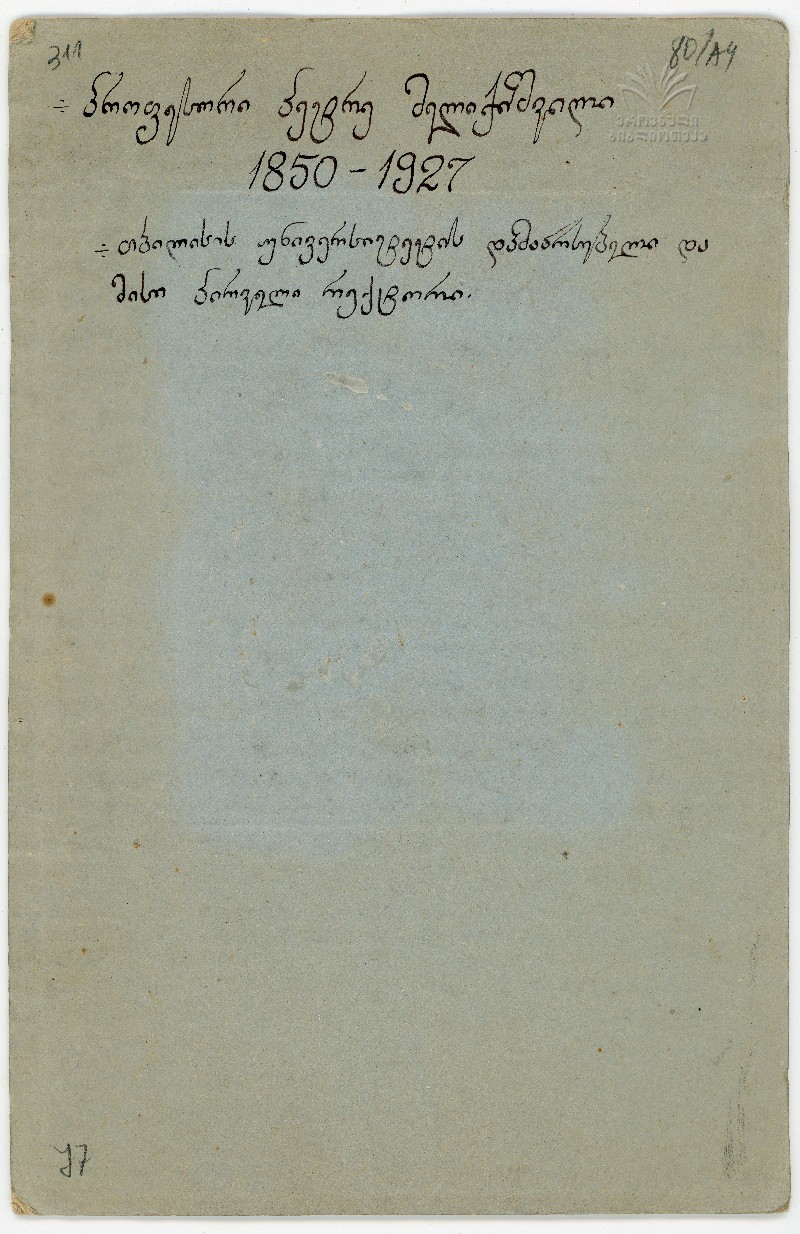 311
80/A4
ეროვნული
ბიბლიოთეკა
÷ პროფესორი პეტრე მელიქიშვილი
1850-1927
÷ თბილისის უნივერსიტეტის დამაარსებელი და
მისი პირველი რექტორი.